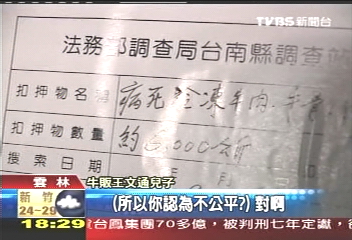 TVBS新聞台
法務部調查局台南縣調查站
扣押物名
病死冷凍牛肉
扣押物數量
約6,000公斤
搜索日期
年 月
雲林
牛販王文通兒子
新竹
24-29
(所以你認為不公平?) 對啊
18:29
貪台鳳集團70多億,被判刑七年定讞,